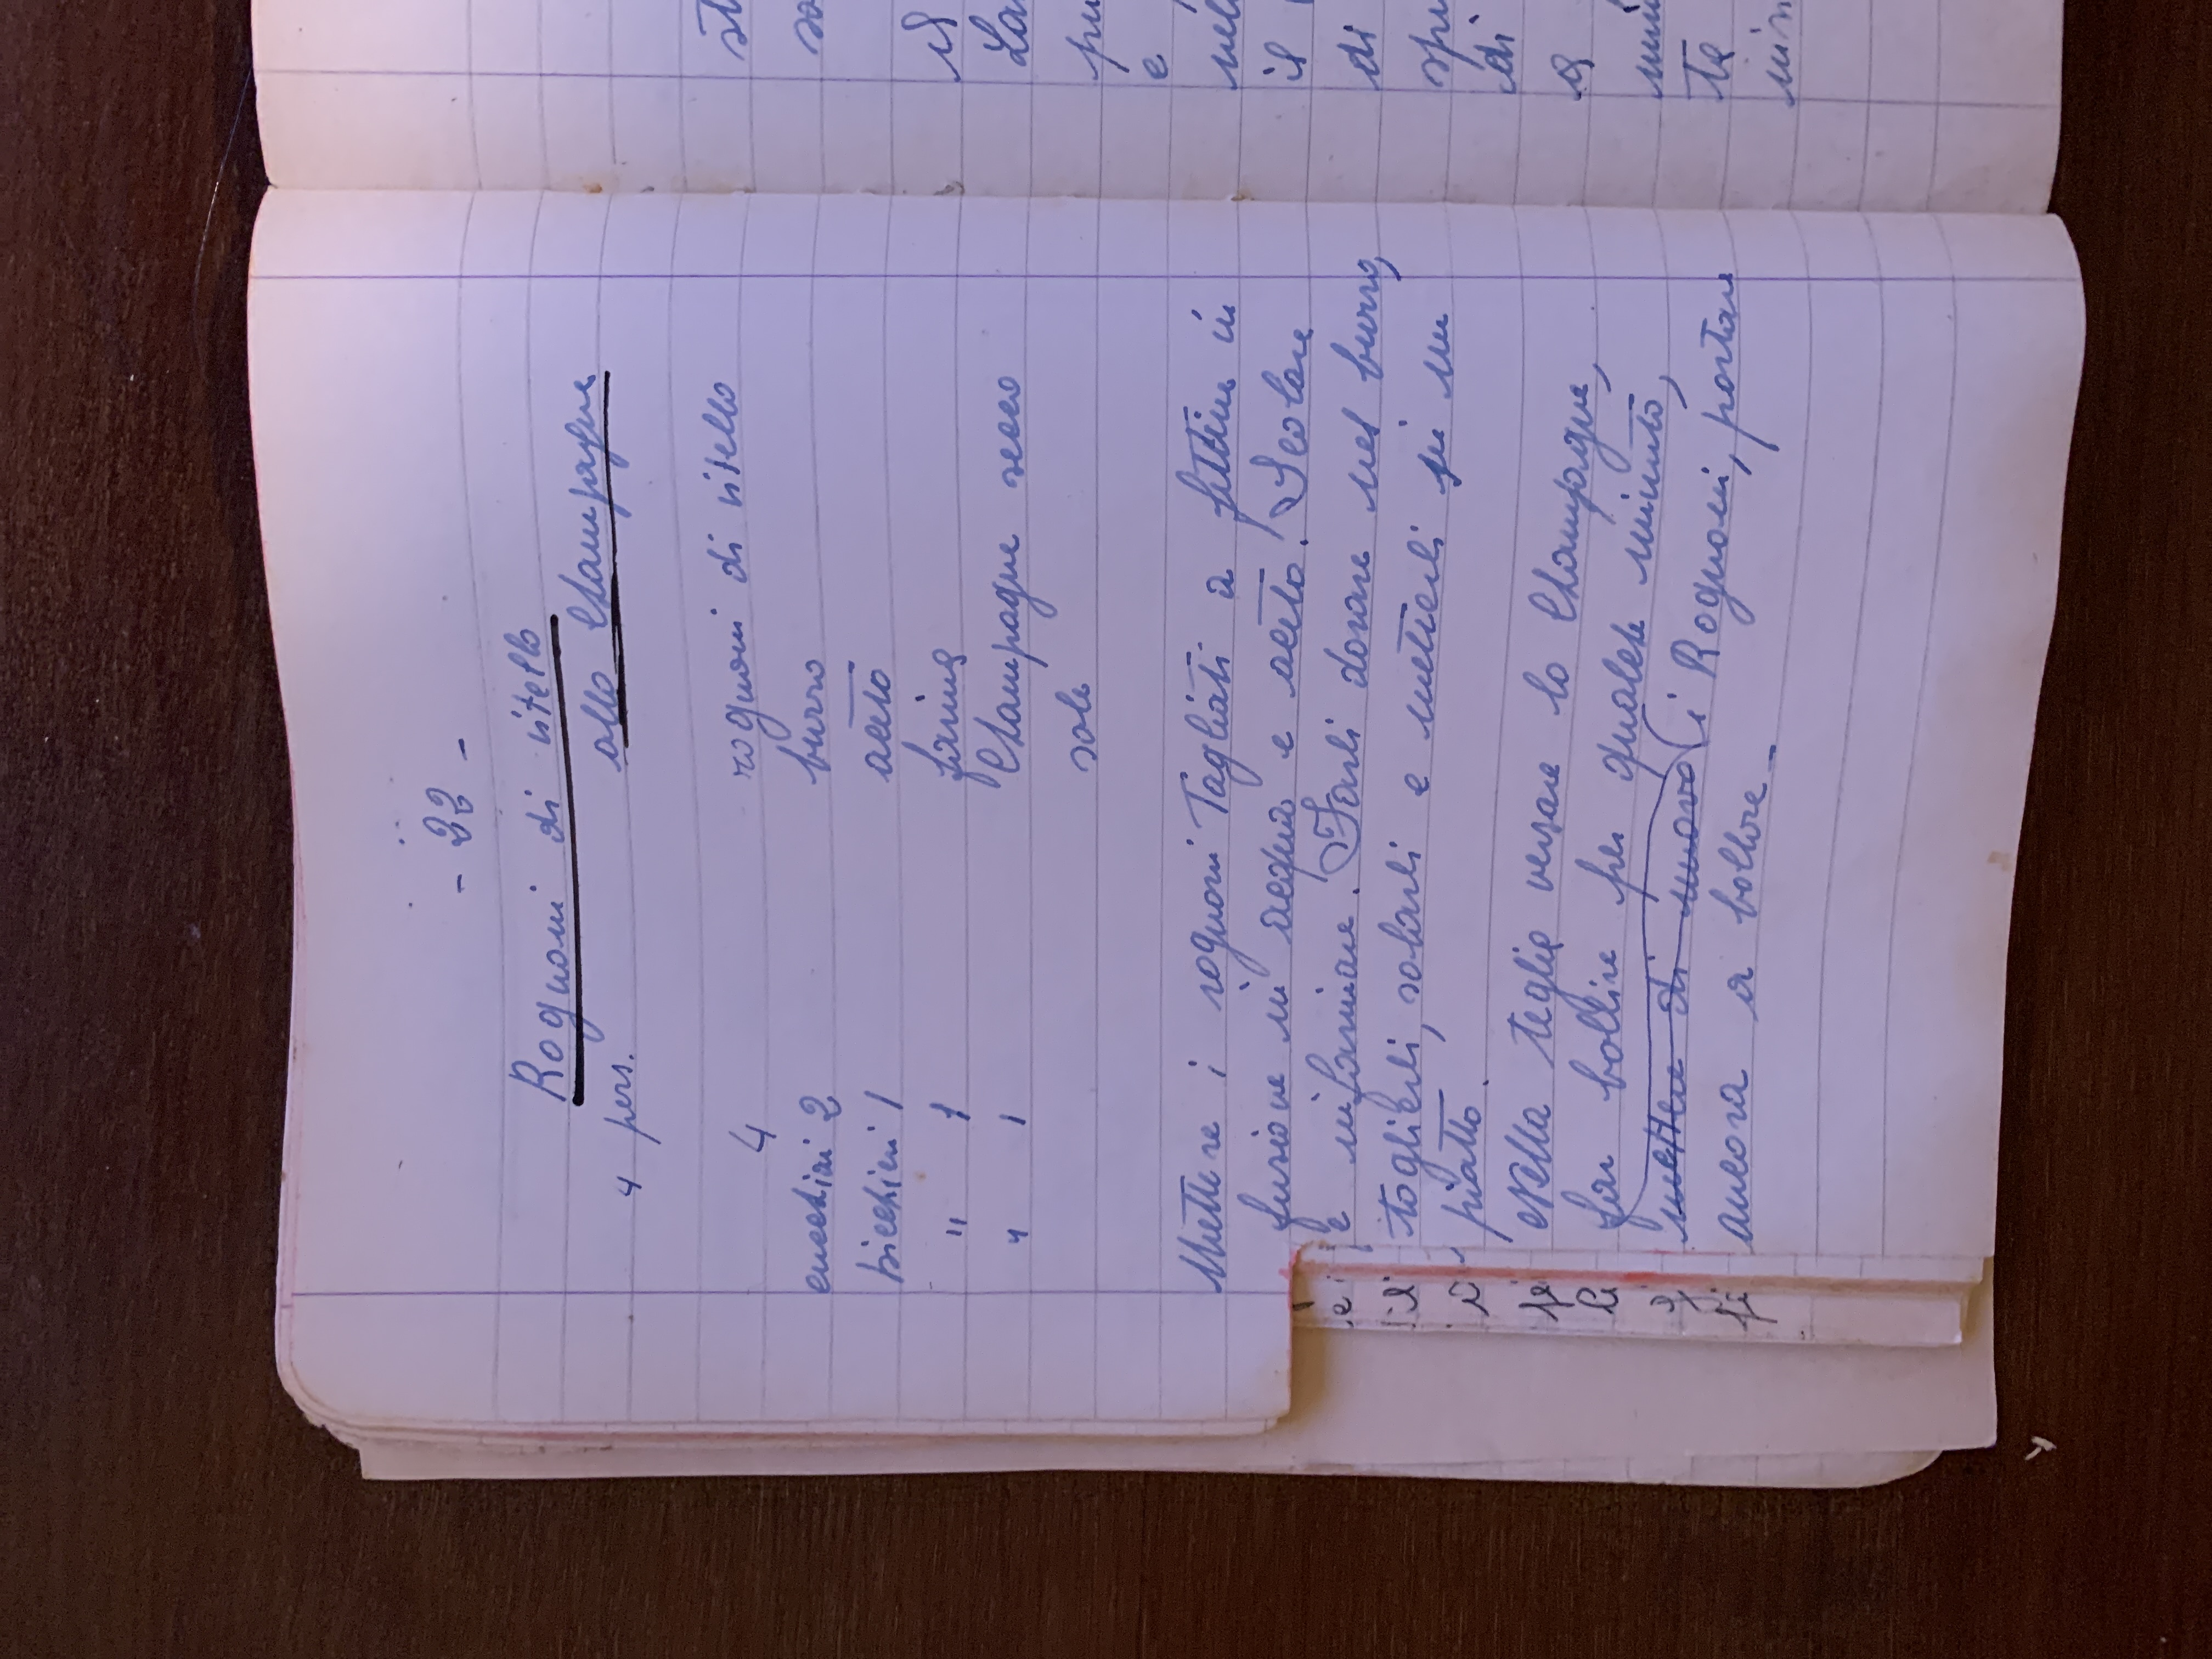 - 22 -
Rognoni di vitello
allo Champagne
4 pers.
4 rognoni di vitello
cucchiai 2 burro
bicchieri 1 aceto
" 1 farina
" 1 Champagne secco
sale
Mettere i rognoni Tagliati a fettine in
fusione in acqua e aceto. Scolare
e infarinare. Farli dorare nel burro,
toglierli, salarli e metterli in un
piatto.
Nella teglia versare lo Champagne,
far bollire per qualche minuto,
mettere di nuovo i Rognoni, portare
ancora a bollore -
e
il
a
st
so
il
La
pu
e
nel
il
di
spu
di
a
te